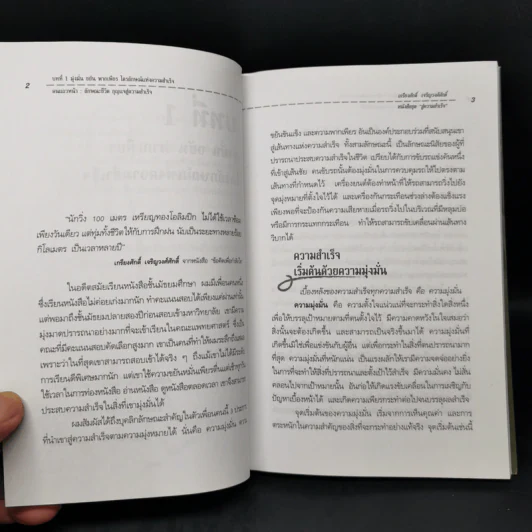 2
บทที่ 1 มุ่งมั่น ขยัน พากเพียร ไตรลักษณ์แห่งความสำเร็จ
"นักวิ่ง 100 เมตร เหรียญทองโอลิมปิก ไม่ได้ใช้เวลาซ้อม
เพียงวันเดียว แต่ทุ่มทั้งชีวิตให้กับการฝึกฝน นับเป็นระยะทางหลายร้อย
กิโลเมตร เป็นเวลาหลายปี"
เกรียงศักดิ์ เจริญวงศ์ศักดิ์ จากหนังสือ
ในอดีตสมัยเรียนหนังสือชั้นมัธยมศึกษา ผมมีเพื่อนคนหนึ่ง
ซึ่งเรียนหนังสือไม่ค่อยเก่งมากนัก ทำคะแนนสอบได้เพียงแค่ผ่านเท่านั้น
แต่พอมาถึงชั้นมัธยมปลายสอบเข้ามหาวิทยาลัย เขามีความ
มุ่งมาดปรารถนาอย่างมากที่จะเข้าเรียนในคณะแพทยศาสตร์ ซึ่งเป็น
คณะที่มีคะแนนสอบคัดเลือกสูงมาก เขาเป็นคนที่ทำให้ผมระลึกถึงเสมอ
เพราะว่าในที่สุดเขาสามารถสอบเข้าได้จริง ๆ ถึงแม้เขาไม่ได้มีหัว
การเรียนดีพิเศษมากนัก แต่เขาใช้ความขยันหมั่นเพียรที่
ใช้เวลาในการท่องหนังสือ อ่านหนังสือ ดูหนังสือตลอดเวลา เขาจึง
ประสบความสำเร็จในสิ่งที่เขามุ่งมั่นได้
ผมสัมผัสได้ถึงบุคลิกลักษณะสำคัญในตัวเพื่อนคนนี้ 3 ประการ
ที่นำเขาสู่ความสำเร็จตามความมุ่งหมายได้ นั่นคือ ความมุ่งมั่น ความ
เกรียงศักดิ์ เจริญวงศ์ศักดิ์
3
หนังสือชุด "สู่ความสำเร็จ"
ขยันขันแข็ง และความพากเพียร อันเป็นองค์ประกอบร่วมที่สนับสนุนเขา
สู่เส้นทางแห่งความสำเร็จ ทั้งสามลักษณะนี้ เป็นลักษณะนิสัยของผู้ที่
ปรารถนาประสบความสำเร็จในชีวิต เปรียบได้กับการขับรถแข่งคันหนึ่ง
ที่เข้าสู่เส้นชัย คนขับรถนั้นต้องมุ่งมั่นในการควบคุมรถให้ไปตรงตาม
เส้นทางที่กำหนดไว้ เครื่องยนต์ต้องทำหน้าที่ให้รถสามารถวิ่งไปยัง
จุดมุ่งหมายที่ตั้งใจไว้ได้ และเครื่องกันกระเทือนช่วงล่างต้องแข็งแรง
เพียงพอที่จะป้องกันความเสียหายเมื่อรถวิ่งไปในบริเวณที่มีหลุมบ่อ
หรือมีการกระแทกกระเทือน ทำให้รถสามารถขับเคลื่อนผ่านเส้นทาง
วิบากได้
ความสำเร็จ
เริ่มต้นด้วยความมุ่งมั่น
เบื้องหลังของความสำเร็จทุกความสำเร็จ คือ ความมุ่งมั่น
ความมุ่งมั่น คือ ความตั้งใจแน่วแน่ที่จะกระทำสิ่งใดสิ่งหนึ่ง
เพื่อให้บรรลุเป้าหมายตามที่ตนตั้งใจไว้ มีความคาดหวังในใจเสมอว่า
สิ่งนั้นจะต้องเกิดขึ้น และสามารถเป็นจริงขึ้นมาได้ ความมุ่งมั่นที่
เกิดขึ้นมิใช่เพื่อแข่งขันกับผู้อื่น แต่เพื่อกระทำสิ่งที่ตนปรารถนามาก
ที่สุด ความมุ่งมั่นที่หนักแน่น เป็นแรงผลักให้เขามีความจดจ่ออย่างยิ่ง
ในการที่จะทำให้สิ่งที่ปรารถนาและตั้งใจไว้สำเร็จ มีความมั่นคง ไม่สั่น
คลอนไปจากเป้าหมายนั้น อันก่อให้เกิดแรงขับเคลื่อนในการเผชิญกับ
ปัญหาเบื้องหน้าได้ และเกิดความเพียรกระทำต่อไปจนบรรลุผลสำเร็จ
จุดเริ่มต้นของความมุ่งมั่น เริ่มจากการเห็นคุณค่า และการ
ตระหนักในความสำคัญของสิ่งที่จะกระทำอย่างแท้จริง จุดเริ่มต้นเช่นนี้